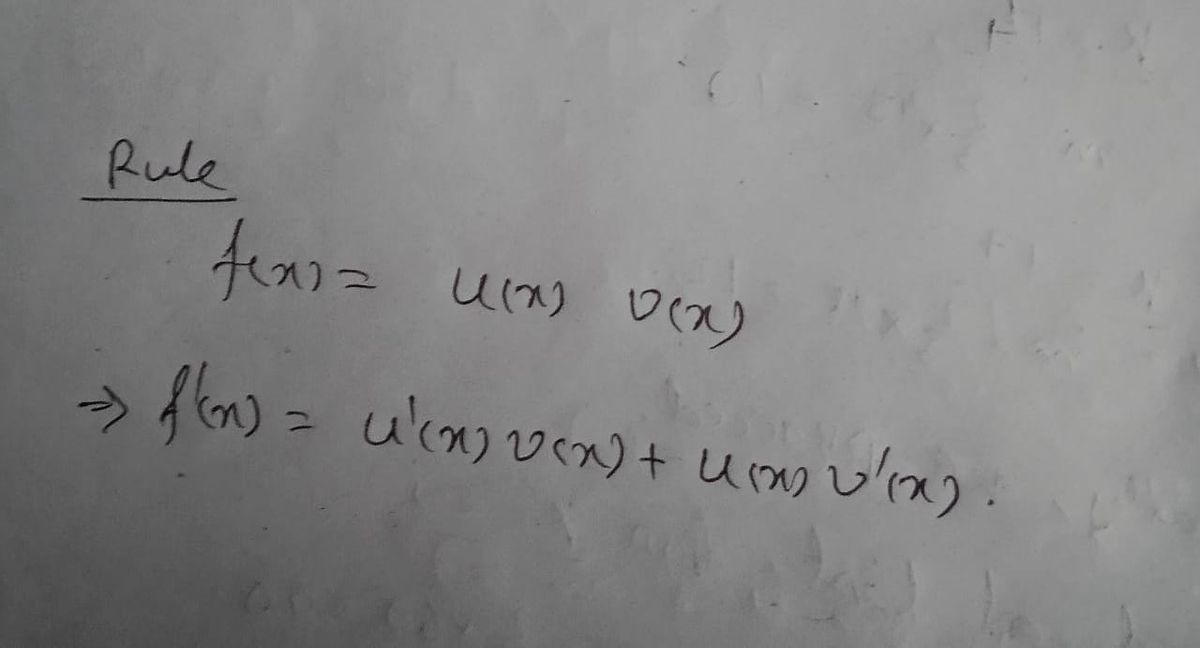 Rule
f(x) = u(x) v(x)
⇒ f'(x) = u'(x) v(x) + u(x) v'(x).